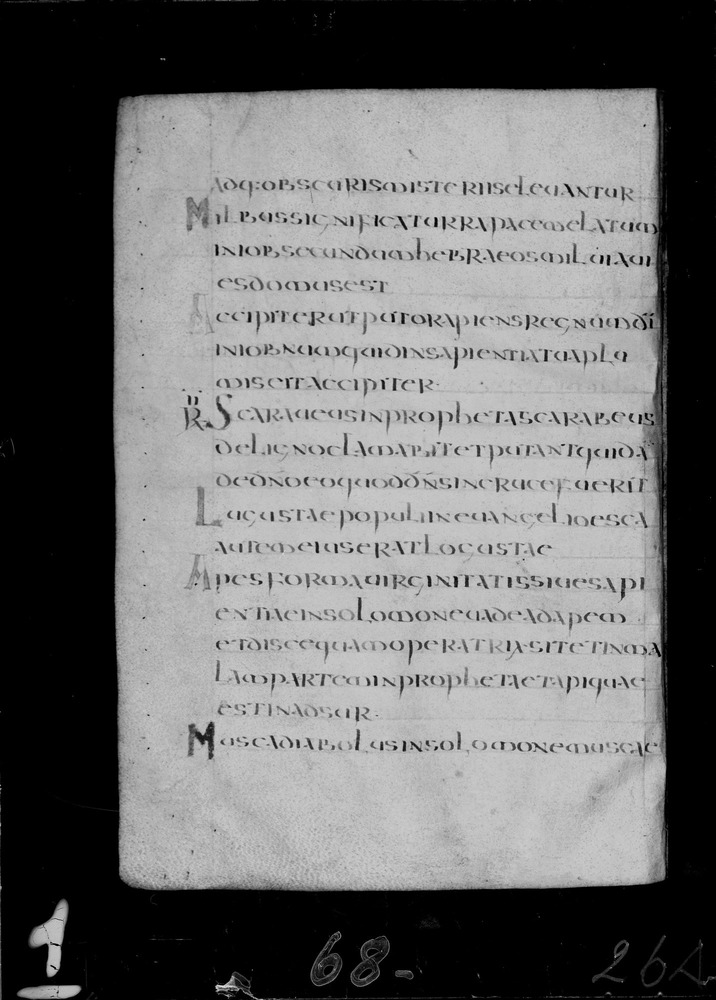 adq: obscuris misteriis elevantur
Milbus significatur rapacem elatum
in iob secundum hebraeos milui avi
es domus est
Accipiter ut puto rapiens regnum dī
in iob numquid insapientia tua plu
mis eit accipiter
Scaraveus in propheta scarabeus
de ligno clamabit et putant quidā
de dño eo quod dñs in cruce fuerit
Lucustae populi in euangelio esca
autem eius erat locustae
Apes forma uirginitatis siue sapi
entiae in solomone uade ad apem
et disce quam operatrix sit et in ma
lam partem in propheta et api quae
est in adsur
Musca diabolus in solomone muscae
1
68-
264